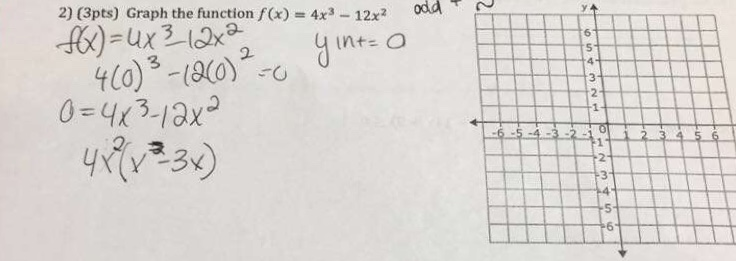 2) (3pts) Graph the function f(x) = 4x³ − 12x²
odd +
f(x) = 4x³-12x²
y int = 0
4(0)³ -12(0)² = 0
0 = 4x³-12x²
4x²(x² -3x)
y
6
5
4
3
2
1
-6 -5 -4 -3 -2 -1 0 1 2 3 4 5 6
-1
-2
-3
-4
-5
-6